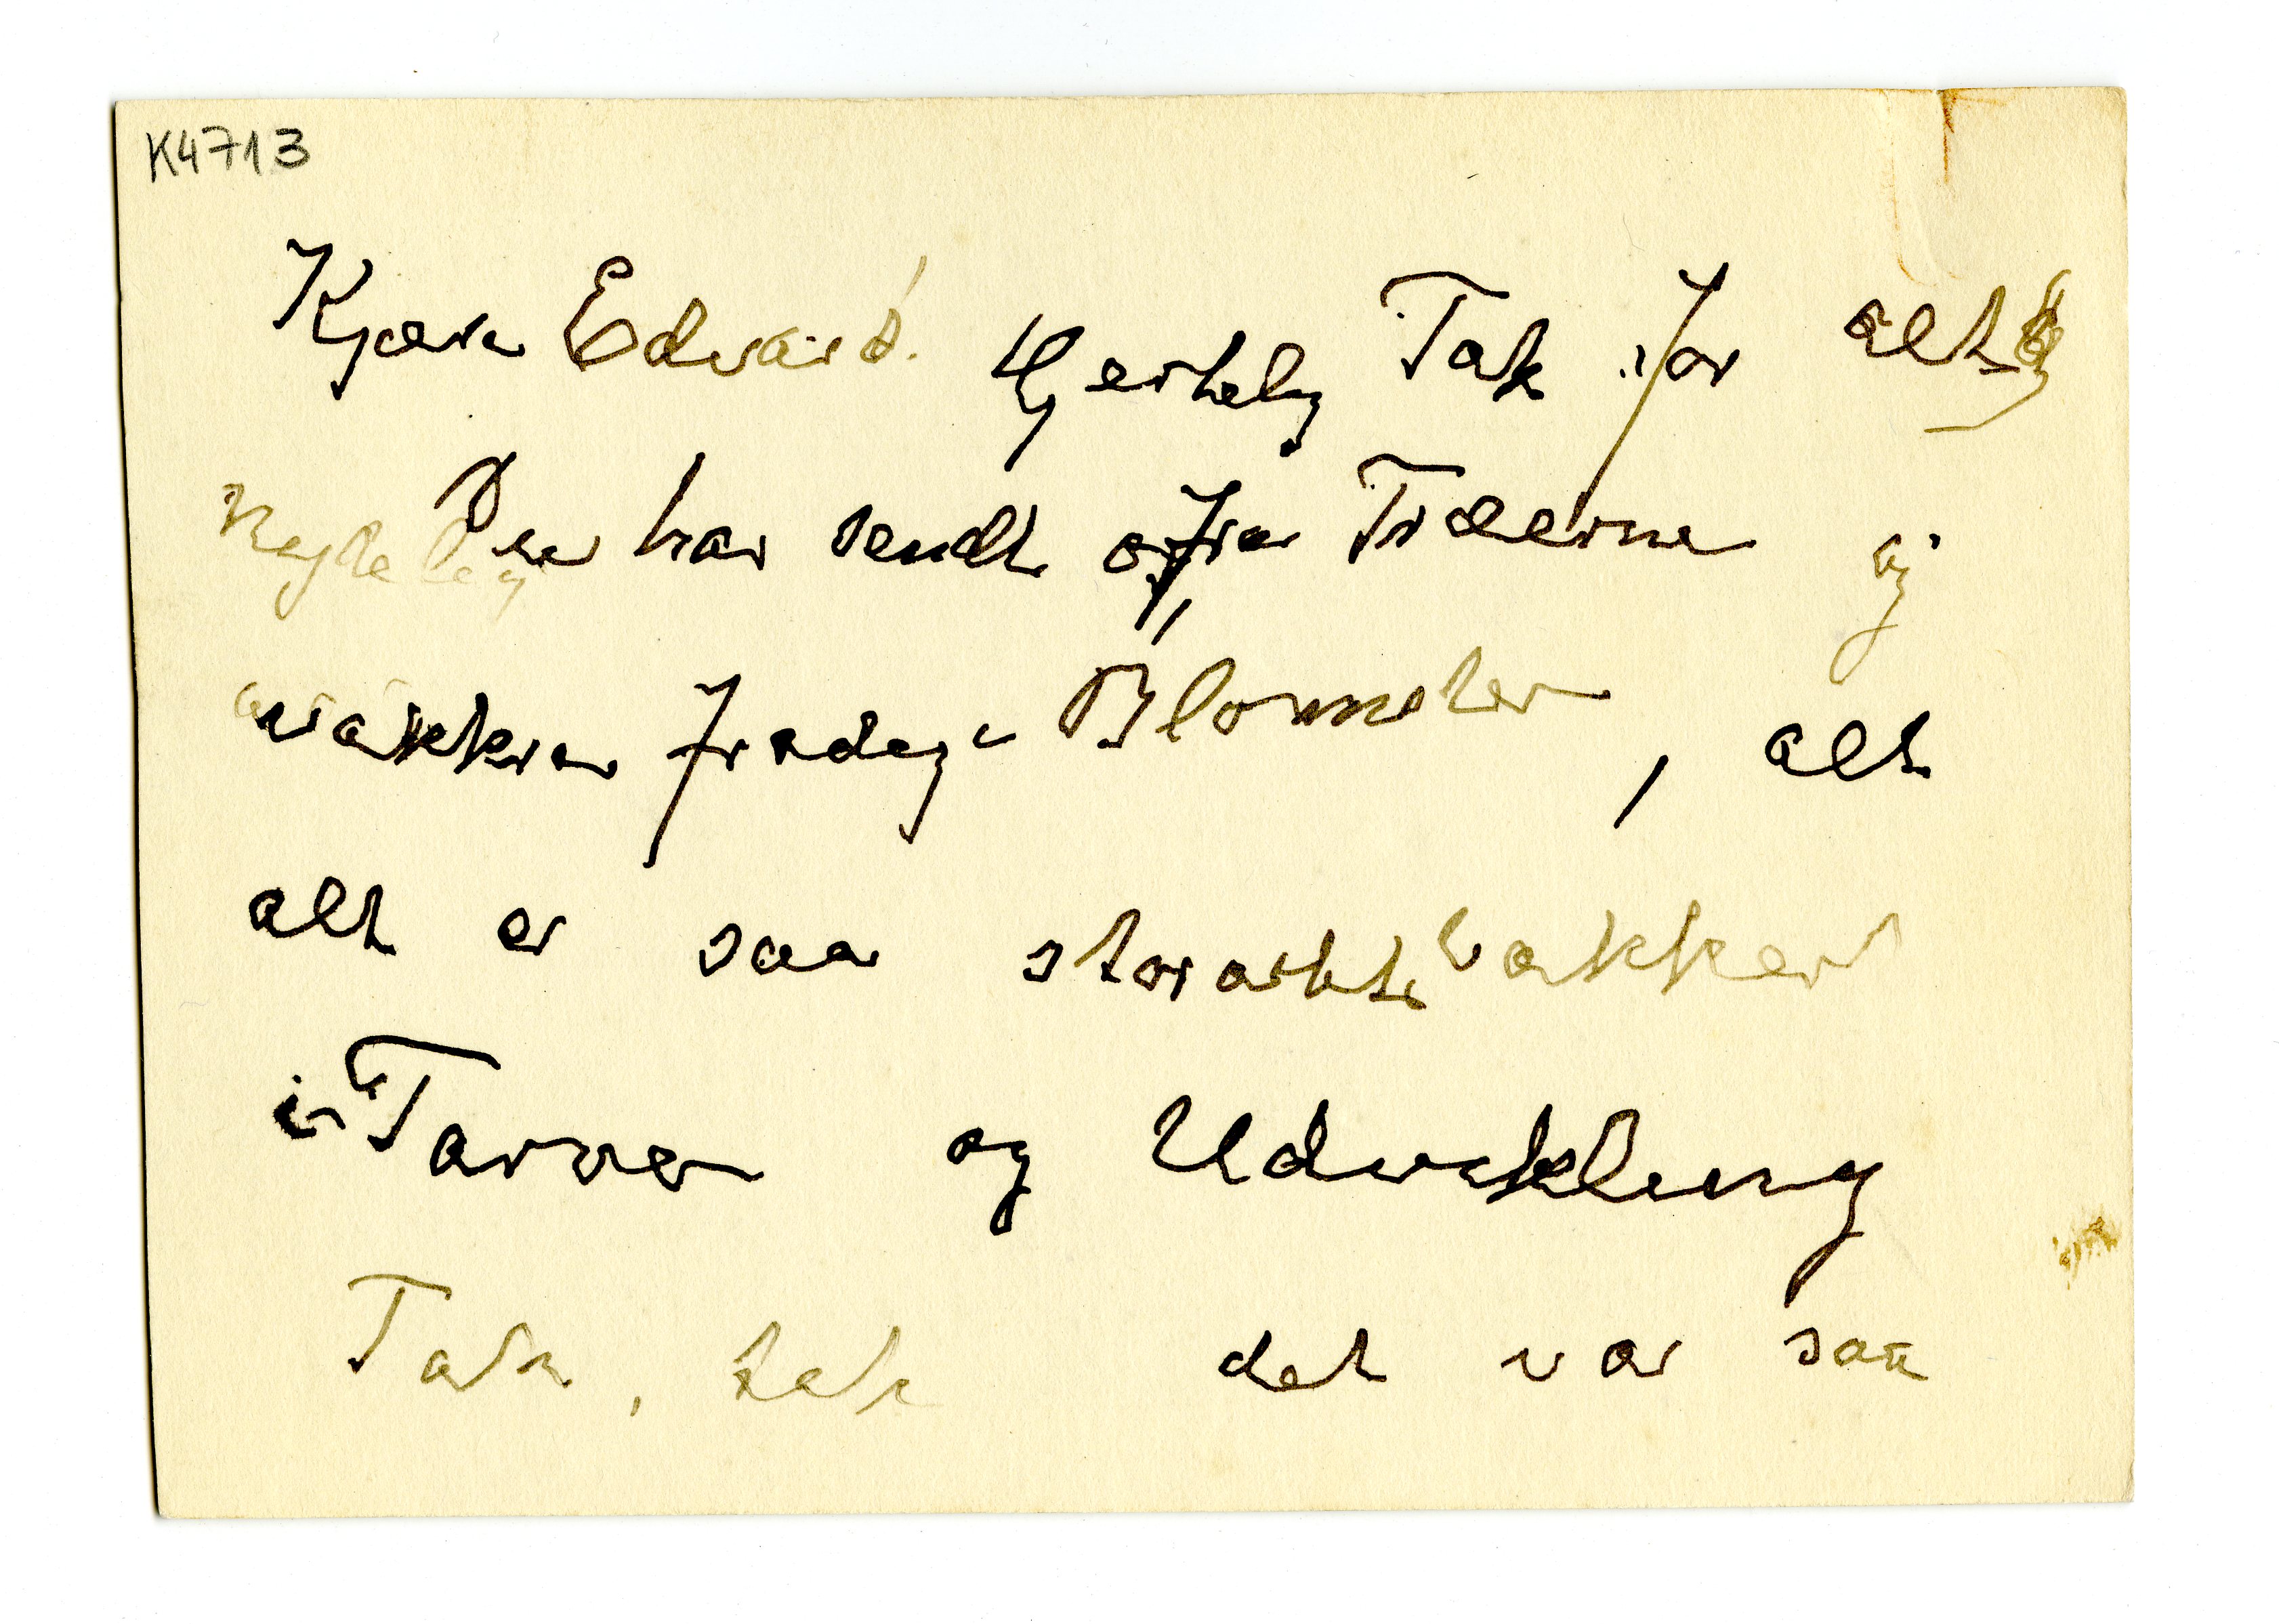 K4713
Kjære Edvard. Hjertelig Tak for alt
Du har sendt fra Træerne og
vakkre Blomster, alt
alt er saa storartet vakkert
i Farver og Udvikling
Tak, tak det var saa